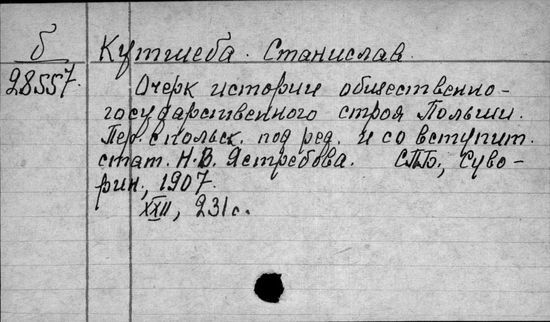 б Кутшеба. Станислав.
28557. Очерк истории общественно-
государственного строя Польши.
Пер. с польск. под ред. и со вступит.
стат. Н.В. Ястребова. СПБ, Суво-
рин, 1907.
XXII, 231 с.